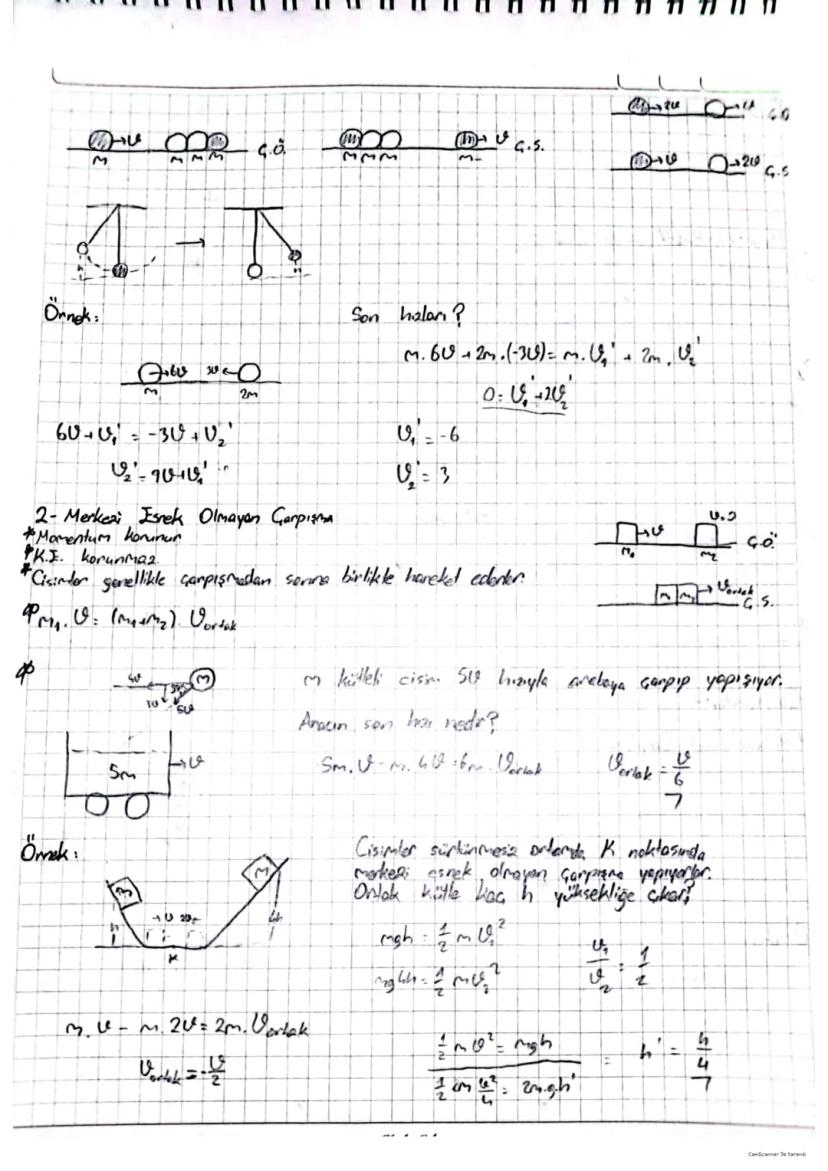 →2υ →υ Ç.Ö
→υ Ç.Ö. →υ Ç.S.
m m m m m m m m
→υ →2υ Ç.S
h h
Örnek: Son hızları?
m.6υ + 2m.(-3υ) = m.υ₁' + 2m.υ₂'
→6υ 3υ←
m 2m
0 = υ₁' + 2υ₂'
6υ + υ₁' = -3υ + υ₂' υ₁' = -6
υ₂' = 9υ + υ₁' υ₂' = 3
2- Merkezi Esnek Olmayan Çarpışma
* Momentum korunur
* K.E. korunmaz
* Cisimler genellikle çarpışmadan sonra birlikte hareket ederler.
→υ υ=0 Ç.Ö.
m₁ m₂
m₁ m₂ → υortak Ç.S.
m₁.υ = (m₁+m₂).υortak
4υ 3υ 5υ m
m kütleli cisim 5υ hızıyla arabaya çarpıp yapışıyor.
Aracın son hızı nedir?
5m →υ
5m.υ - m.4υ = 6m.υortak υortak = υ/6
Örnek:
Cisimler sürtünmesiz ortamda K noktasında
merkezi esnek olmayan çarpışma yapıyorlar.
Ortak kütle kaç h yüksekliğe çıkar?
m m
h →υ 2υ← 4h
K
mgh = 1/2 m υ₁²
mg4h = 1/2 m υ₂²
υ₁/υ₂ = 1/2
m.υ - m.2υ = 2m.υortak
υortak = -υ/2
1/2 m υ² = mgh
1/2 2m υ²/4 = 2m.g.h'
= h' = h/4
CamScanner ile tarandı